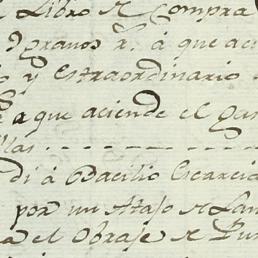 Libro de Compra
y granos r.^s á que a
o y estraordinario
e a que aciende el Gas
llas
di á Bacilio Escarcia
por un Atajo de Lan
a el Obraje de Pu